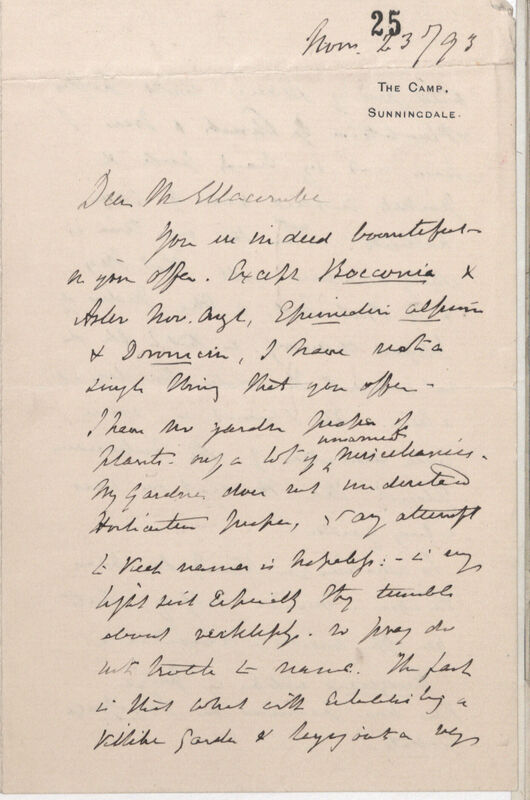 25
Nov. 23 / 93
THE CAMP,
SUNNINGDALE.
Dear Mr Ellacombe
You are indeed bountiful
in your offer. Except Bocconia &
Aster Nov. Angl, Epimedium alpinum
& Doronicum, I have not a
single thing that you offer -
I have no garden proper of
plants - only a lot of unnamed miscellanies.
My Gardener does not understand
Horticulture proper, & any attempt
to keep names is hopeless: - in my
light soil especially they tumble
about recklessly. so pray do
not trouble to name. The fact
is that what with establishing a
Kitchen Garden & laying out a very